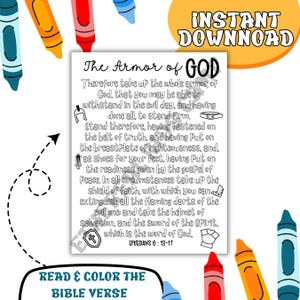 INSTANT
DOWNNOAD
The Armor of GOD
Therefore take up the whole armor of
God, that you may be able to
withstand in the evil day, and having
done all, to stand firm.
Stand therefore, having fastened on
the belt of truth, and having put on
the breastplate of righteousness, and,
as shoes for your feet, having put on
the readiness given by the gospel of
peace. In all circumstances take up the
shield of faith, with which you can
extinguish all the flaming darts of the
evil one; and take the helmet of
salvation, and the sword of the Spirit,
which is the word of God.
EPHESIANS 6 : 13-17
READ & COLOR THE
BIBLE VERSE